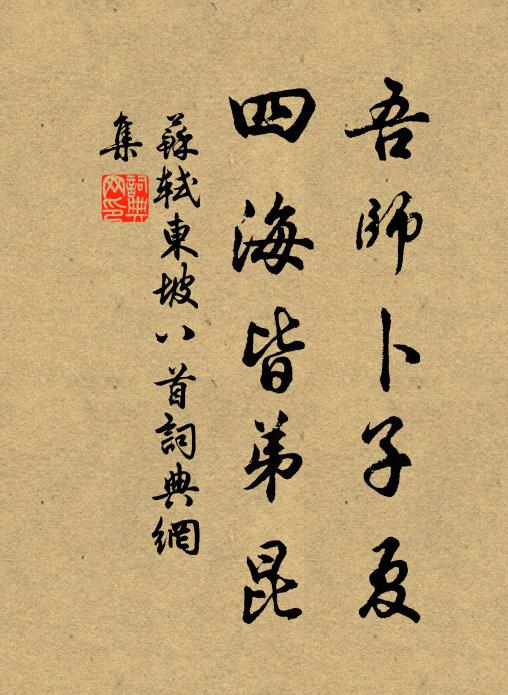 吾師卜子夏
四海皆弟昆
蘇軾東坡八首詞典網
集
詞典
網印